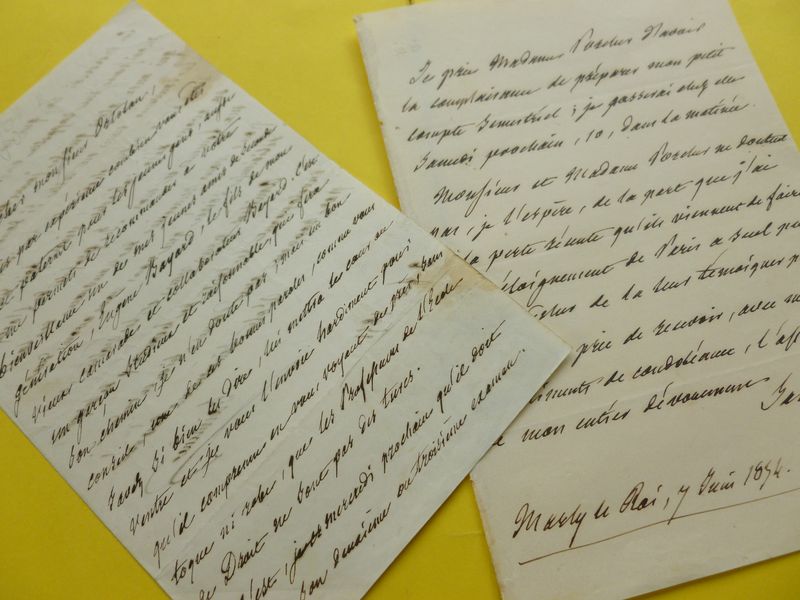 mon sieur Ortolan,
par expérience combien vous êtes
et paternel pour les jeunes gens, aussi
me permets de recommander à votre
bienveillance un de mes jeunes amis de seconde
génération, Eugène Bayard, le fils de mon
vieux camarade et collaborateur Bayard. C'est
un garçon studieux et raisonnable qui fera
bon chemin, je n'en doute pas; mais un bon
conseil, une de ces bonnes paroles, comme vous
savez si bien les dire, lui mettra le cœur au
ventre et je vous l'envoie hardiment pour
qu'il comprenne en vous voyant de près, sans
toque ni robe, que les Professeurs de l'Ecole
de Droit ne sont pas des turcs.
C'est mercredi prochain qu'il doit
son deuxième ou troisième examen.
Je prie Madame Porcher d'avoir
la complaisance de préparer mon petit
compte semestriel; je passerai chez elle
Samedi prochain, 10, dans la matinée.
Monsieur et Madame Porcher ne doutent
pas, je l'espère, de la part que j'ai
la perte récente qu'ils viennent de faire
éloignement de Paris a seul pu
de la leur témoigner
prie de recevoir, avec mes
de condoléance, l'
mon entier dévouement
Marly le Roi, 7 Juin 1854.